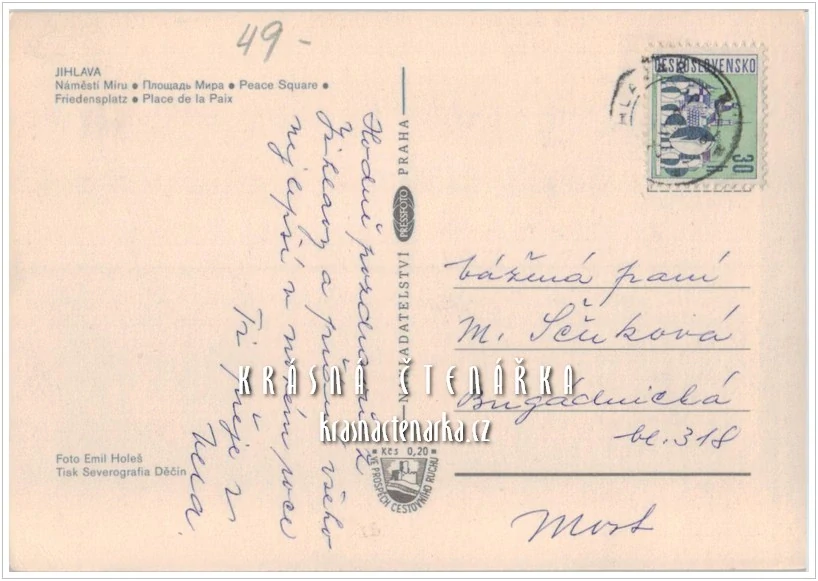 49-
JIHLAVA
Náměstí Míru • Площадь Мира • Peace Square •
Friedensplatz • Place de la Paix
Hodně pozdravů z
Jihlavy a přání všeho
nejlepší v novém roce
Ti přeje
NAKLADATELSTVÍ PRESSFOTO PRAHA
ČESKOSLOVENSKO
30
h
JIHLAVA
Vážená paní
M. Ščuková
Brigádnická
bl. 318
Most
KRÁSNÁ ČTENÁŘKA
krasnactenarka.cz
Foto Emil Holeš
Tisk Severografia Děčín
Kčs 0,20
VE PROSPĚCH CESTOVNÍHO RUCHU